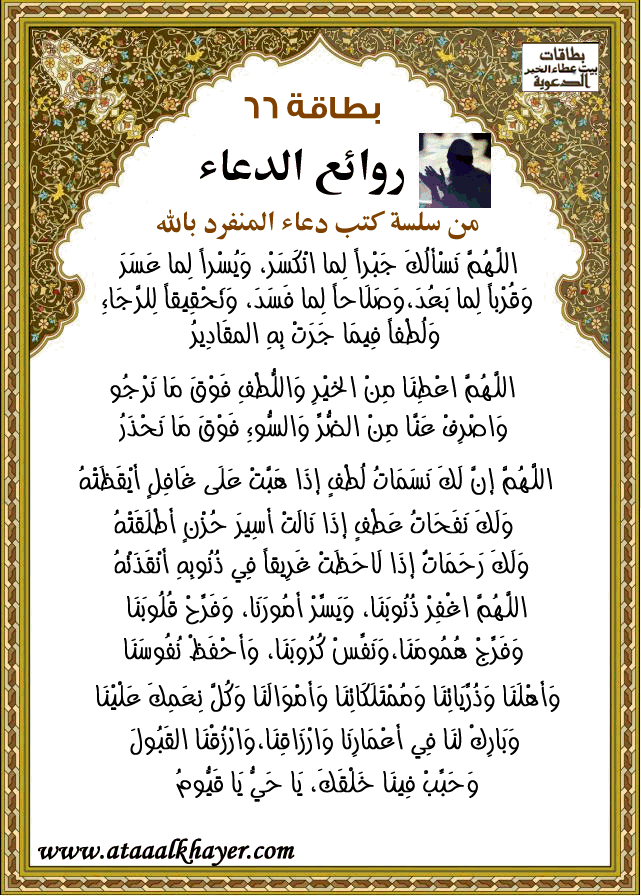 بطاقات
بيت عطاء الخير
الدعوية
بطاقة ٦٦
روائع الدعاء
من سلسة كتب دعاء المنفرد بالله
اللَّهُمَّ نَسْأَلُكَ جَبْراً لِما انْكَسَرْ، وَيُسْراً لِما عَسَرَ
وَقُرْباً لِما بَعُدَ،وَصَلَاحاً لِما فَسَدَ، وَتَحْقِيقاً لِلرَّجَاءِ
وَلُطْفاً فِيمَا جَرَتْ بِهِ المقَادِيرُ
اللَّهُمَّ اعْطِنَا مِنْ الخَيْرِ وَاللُّطْفِ فَوْقَ مَا نَرْجُو
وَاصْرِفْ عَنَّا مِنْ الضُّرِّ وَالسُّوءِ فَوْقَ مَا نَحْذَرُ
اللَّهُمَّ إنَّ لَكَ نَسَمَاتُ لُطْفٍ إذَا هَبَّتْ عَلَى غَافِلٍ أيْقَظَتْهُ
وَلَكَ نَفَحَاتُ عَطْفٍ إذَا نَالَتْ أسِيرَ حُزْنٍ أطْلَقَتْهُ
وَلَكَ رَحَمَاتٌ إذَا لَاحَظَتْ غَرِيقاً فِي ذُنُوبِهِ أنْقَذَتْهُ
اللَّهُمَّ اغْفِرْ ذُنُوبَنَا، وَيَسِّرْ أمُورَنَا، وَفَرِّحْ قُلُوبَنَا
وَفَرِّجْ هُمُومَنَا،وَنَفِّسْ كُرُوبَنَا، وَأحْفَظْ نُفُوسَنَا
وَأهْلَنَا وَذُرِّيَاتِنَا وَمُمْتَلَكَاتِنَا وَأمْوَالَنَا وَكُلَّ نِعَمِكَ عَلَيْنَا
وَبَارِكْ لنَا فِي أعْمَارِنَا وَارْزَاقِنَا،وَارْزُقْنَا القَبُولَ
وَحَبِّبْ فِينَا خَلْقَكَ، يَا حَيُّ يَا قَيُّومُ
www.ataaalkhayer.com